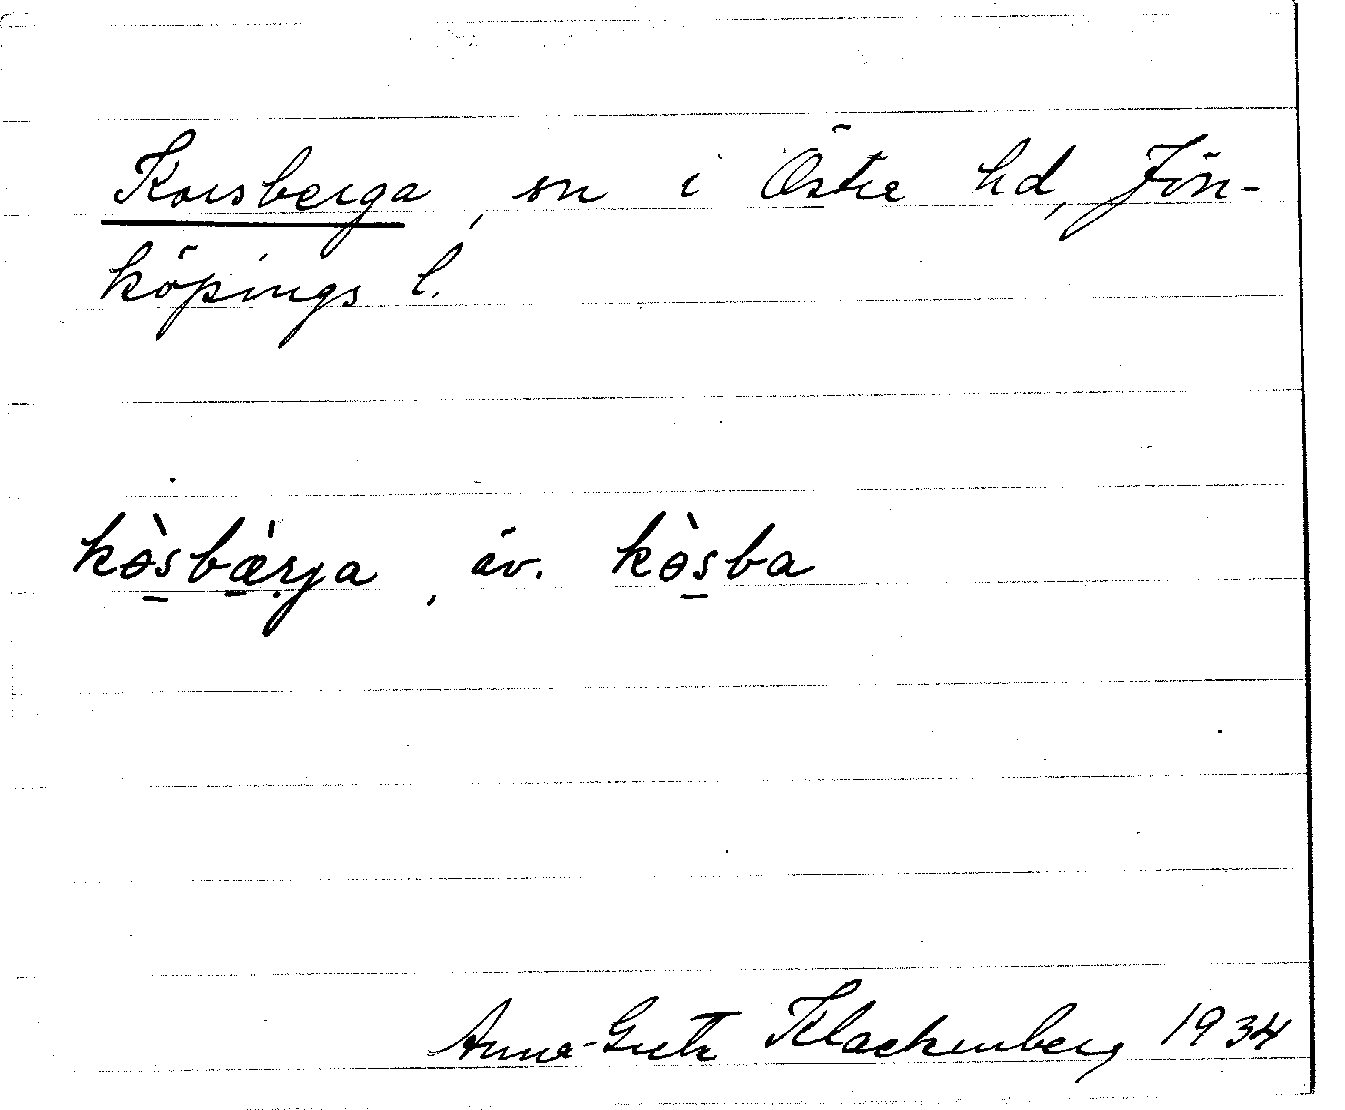 Korsberga, sn i Östra hd, Jön-
köpings l.
kòsbæ̀rja, äv. kòsba
Anna-Greta Klackenberg 1934